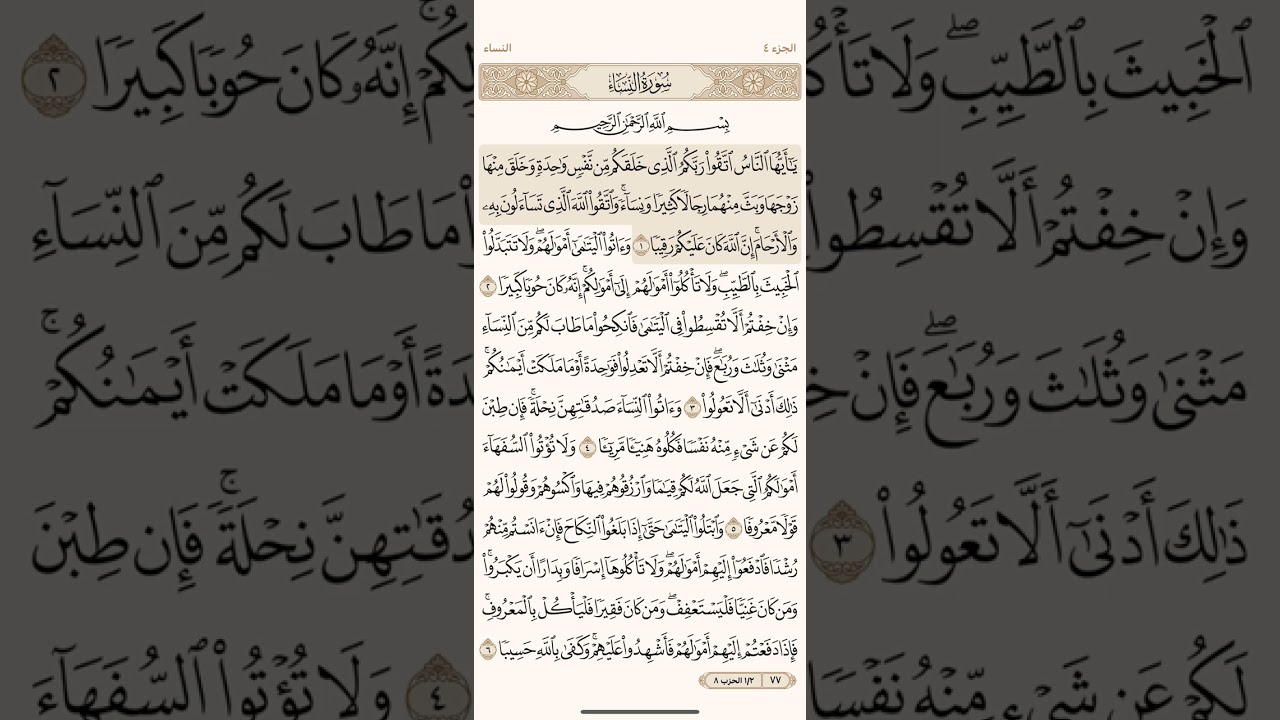 الجزء ٤
النساء
سُورَةُ النِّسَاءِ
بِسْمِ ٱللَّهِ ٱلرَّحْمَٰنِ ٱلرَّحِيمِ
يَٰٓأَيُّهَا ٱلنَّاسُ ٱتَّقُوا۟ رَبَّكُمُ ٱلَّذِى خَلَقَكُم مِّن نَّفْسٍ وَٰحِدَةٍ وَخَلَقَ مِنْهَا
زَوْجَهَا وَبَثَّ مِنْهُمَا رِجَالًا كَثِيرًا وَنِسَآءً ۚ وَٱتَّقُوا۟ ٱللَّهَ ٱلَّذِى تَسَآءَلُونَ بِهِۦ
وَٱلْأَرْحَامَ ۚ إِنَّ ٱللَّهَ كَانَ عَلَيْكُمْ رَقِيبًا ١ وَءَاتُوا۟ ٱلْيَتَٰمَىٰٓ أَمْوَٰلَهُمْ ۖ وَلَا تَتَبَدَّلُوا۟
ٱلْخَبِيثَ بِٱلطَّيِّبِ ۖ وَلَا تَأْكُلُوٓا۟ أَمْوَٰلَهُمْ إِلَىٰٓ أَمْوَٰلِكُمْ ۚ إِنَّهُۥ كَانَ حُوبًا كَبِيرًا ٢
وَإِنْ خِفْتُمْ أَلَّا تُقْسِطُوا۟ فِى ٱلْيَتَٰمَىٰ فَٱنكِحُوا۟ مَا طَابَ لَكُم مِّنَ ٱلنِّسَآءِ
مَثْنَىٰ وَثُلَٰثَ وَرُبَٰعَ ۖ فَإِنْ خِفْتُمْ أَلَّا تَعْدِلُوا۟ فَوَٰحِدَةً أَوْ مَا مَلَكَتْ أَيْمَٰنُكُمْ ۚ
ذَٰلِكَ أَدْنَىٰٓ أَلَّا تَعُولُوا۟ ٣ وَءَاتُوا۟ ٱلنِّسَآءَ صَدُقَٰتِهِنَّ نِحْلَةً ۚ فَإِن طِبْنَ
لَكُمْ عَن شَىْءٍ مِّنْهُ نَفْسًا فَكُلُوهُ هَنِيٓـًٔا مَّرِيٓـًٔا ٤ وَلَا تُؤْتُوا۟ ٱلسُّفَهَآءَ
أَمْوَٰلَكُمُ ٱلَّتِى جَعَلَ ٱللَّهُ لَكُمْ قِيَٰمًا وَٱرْزُقُوهُمْ فِيهَا وَٱكْسُوهُمْ وَقُولُوا۟ لَهُمْ
قَوْلًا مَّعْرُوفًا ٥ وَٱبْتَلُوا۟ ٱلْيَتَٰمَىٰ حَتَّىٰٓ إِذَا بَلَغُوا۟ ٱلنِّكَاحَ فَإِنْ ءَانَسْتُم مِّنْهُمْ
رُشْدًا فَٱدْفَعُوٓا۟ إِلَيْهِمْ أَمْوَٰلَهُمْ ۖ وَلَا تَأْكُلُوهَآ إِسْرَافًا وَبِدَارًا أَن يَكْبَرُوا۟ ۚ
وَمَن كَانَ غَنِيًّا فَلْيَسْتَعْفِفْ ۖ وَمَن كَانَ فَقِيرًا فَلْيَأْكُلْ بِٱلْمَعْرُوفِ ۚ
فَإِذَا دَفَعْتُمْ إِلَيْهِمْ أَمْوَٰلَهُمْ فَأَشْهِدُوا۟ عَلَيْهِمْ ۚ وَكَفَىٰ بِٱللَّهِ حَسِيبًا ٦
٧٧ ١/٢ الحزب ٨